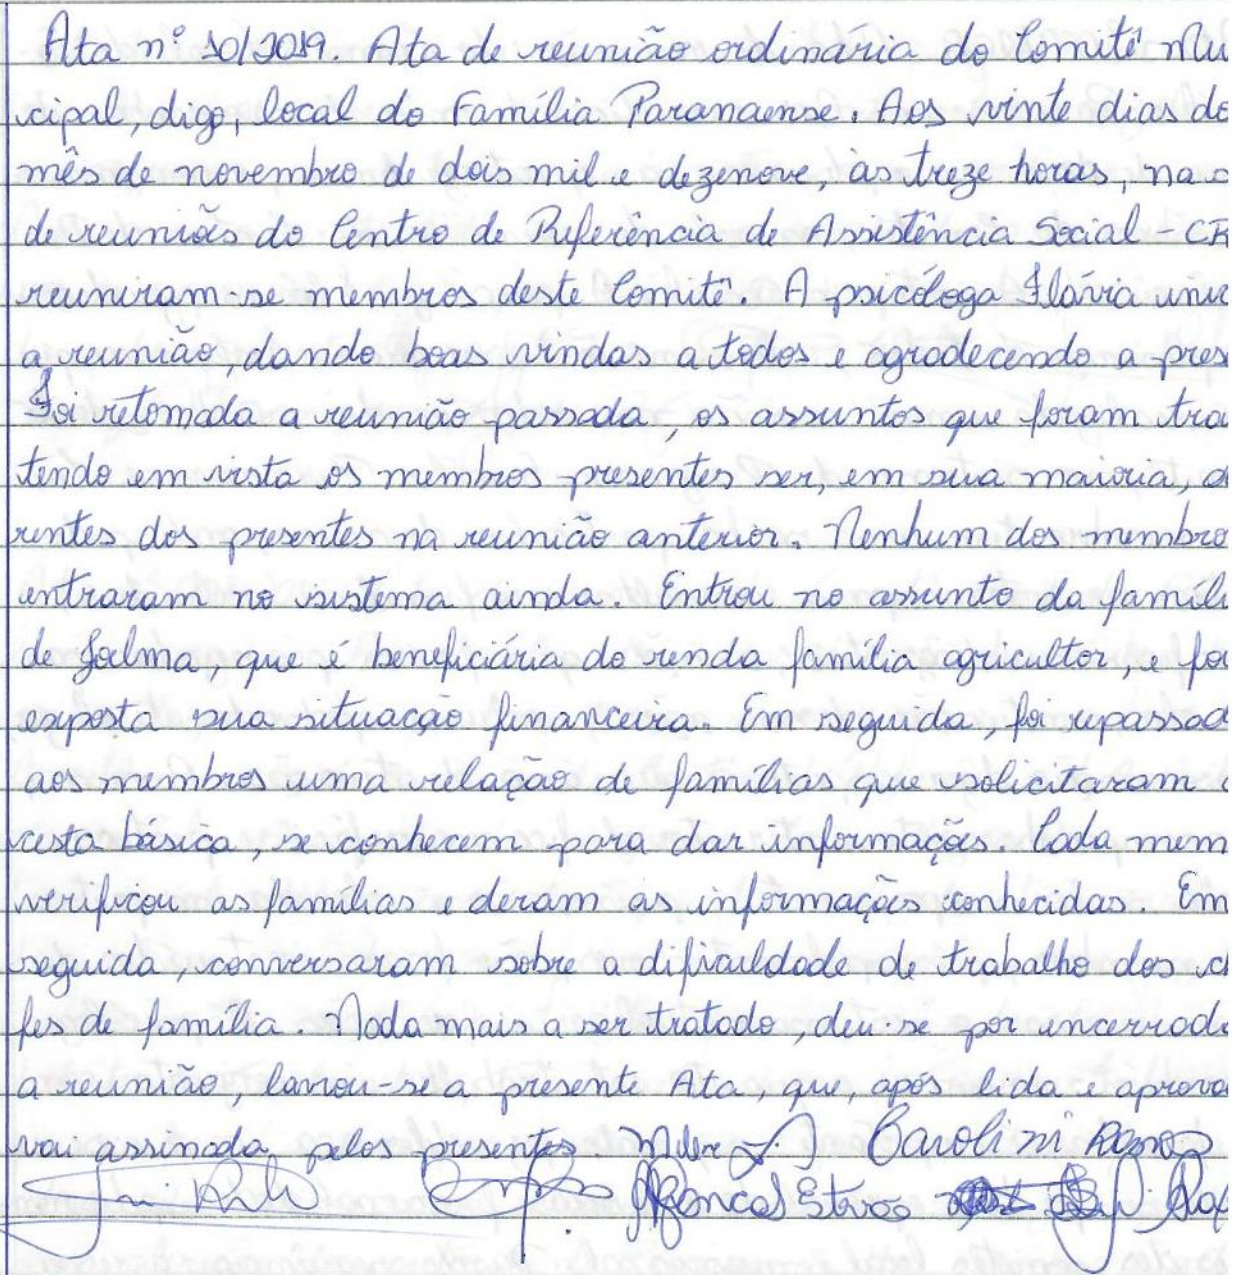 Ata nº 10/2019. Ata de reunião ordinária do Comitê Mu
cipal, digo, local do Família Paranaense. Aos vinte dias do
mês de novembro de dois mil e dezenove, às treze horas, na s
de reuniões do Centro de Referência de Assistência Social - CR
reuniram-se membros deste Comitê. A psicóloga Flávia inic
a reunião, dando boas vindas a todos e agradecendo a pres
Foi retomada a reunião passada, os assuntos que foram tra
tendo em vista os membros presentes ser, em sua maioria, d
rentes dos presentes na reunião anterior. Nenhum dos membro
entraram no sistema ainda. Entrou no assunto da famíli
de Joelma, que é beneficiária do renda família agricultor, e foi
exposta sua situação financeira. Em seguida, foi repassad
aos membros uma relação de famílias que solicitaram
cesta básica, se conhecem para dar informações. Cada mem
verificou as famílias e deram as informações conhecidas. Em
seguida, conversaram sobre a dificuldade de trabalho dos ch
fes de família. Nada mais a ser tratado, deu-se por encerrada
a reunião, lavrou-se a presente Ata, que, após lida e aprova
vai assinada pelos presentes. Carolini Ramos